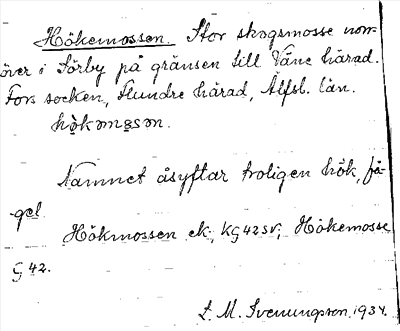 Hökemossen. Stor skogsmosse norr
över i Sörby på gränsen till Väne härad.
Fors socken, Flundre härad, Älfsb. län.
hökəmɔsən.
Namnet åsyftar troligen hök, få-
gel
Hökmossen ek, KG 42 SV, Hökemosse
G 42.
L. M. Svenungsson, 1934.